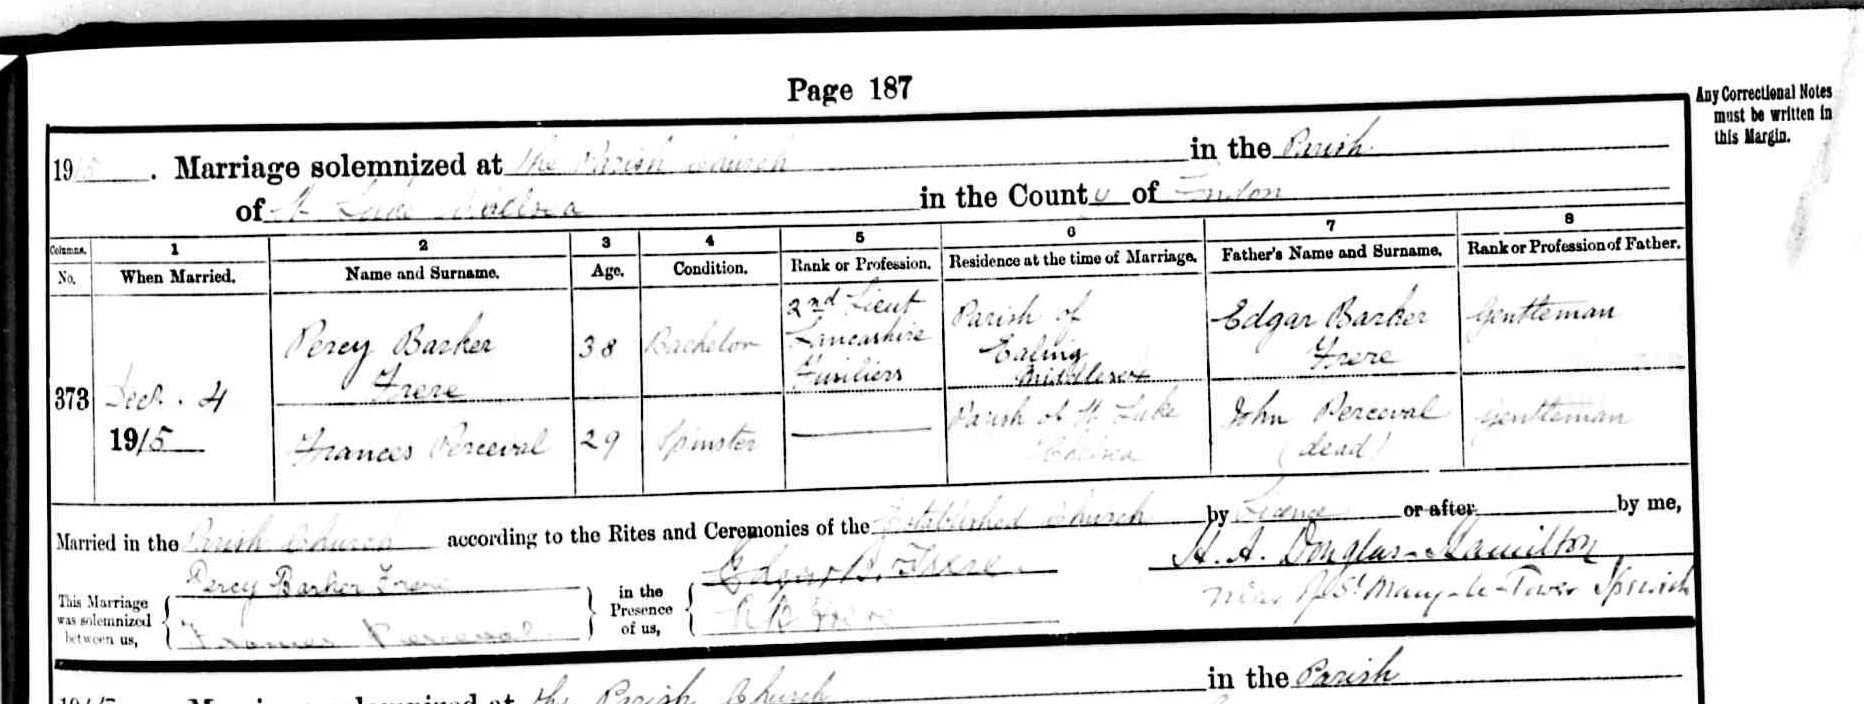 Page 187
Any Correctional Notes
must be written in
this Margin.
1915. Marriage solemnized at The Parish Church in the Parish
of St Luke Chelsea in the County of London
Columns. 1 2 3 4 5 6 7 8
No. When Married. Name and Surname. Age. Condition. Rank or Profession. Residence at the time of Marriage. Father's Name and Surname. Rank or Profession of Father.
373
Decr. 4
1915
Percy Barker
Frere
38
Bachelor
2nd Lieut
Lancashire
Fusiliers
Parish of
Ealing
Middlesex
Edgar Barker
Frere
Gentleman
Frances Perceval
29
Spinster
Parish of St Luke
Chelsea
John Perceval
(dead)
Gentleman
Married in the Parish Church according to the Rites and Ceremonies of the Established Church by Licence or after by me,
This Marriage
was solemnized
between us,
Percy Barker Frere
Frances Perceval
in the
Presence
of us,
Edgar B. Frere
Frere
A. A. Douglas-Hamilton
of St Mary-le-Tower Ipswich
Marriage solemnized at the Parish Church in the Parish